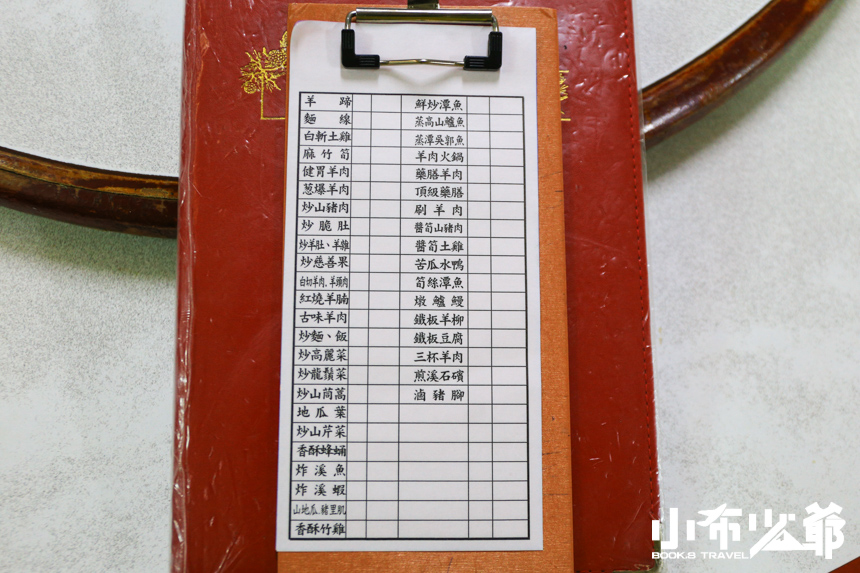 羊蹄
麵線
白斬土雞
麻竹筍
健胃羊肉
蔥爆羊肉
炒山豬肉
炒脆肚
炒羊肚、羊雜
炒慈善果
白切羊肉.羊頭肉
紅燒羊腩
古味羊肉
炒麵、飯
炒高麗菜
炒龍鬚菜
炒山茼蒿
地瓜葉
炒山芹菜
香酥蜂蛹
炸溪魚
炸溪蝦
山地瓜.豬里肌
香酥竹雞
鮮炒潭魚
蒸高山鱸魚
蒸潭吳郭魚
羊肉火鍋
藥膳羊肉
頂級藥膳
刷羊肉
醬筍山豬肉
醬筍土雞
苦瓜水鴨
筍絲潭魚
燉鱸鰻
鐵板羊柳
鐵板豆腐
三杯羊肉
煎溪石礦
滷豬腳
小布少爺
BOOK.8 TRAVEL